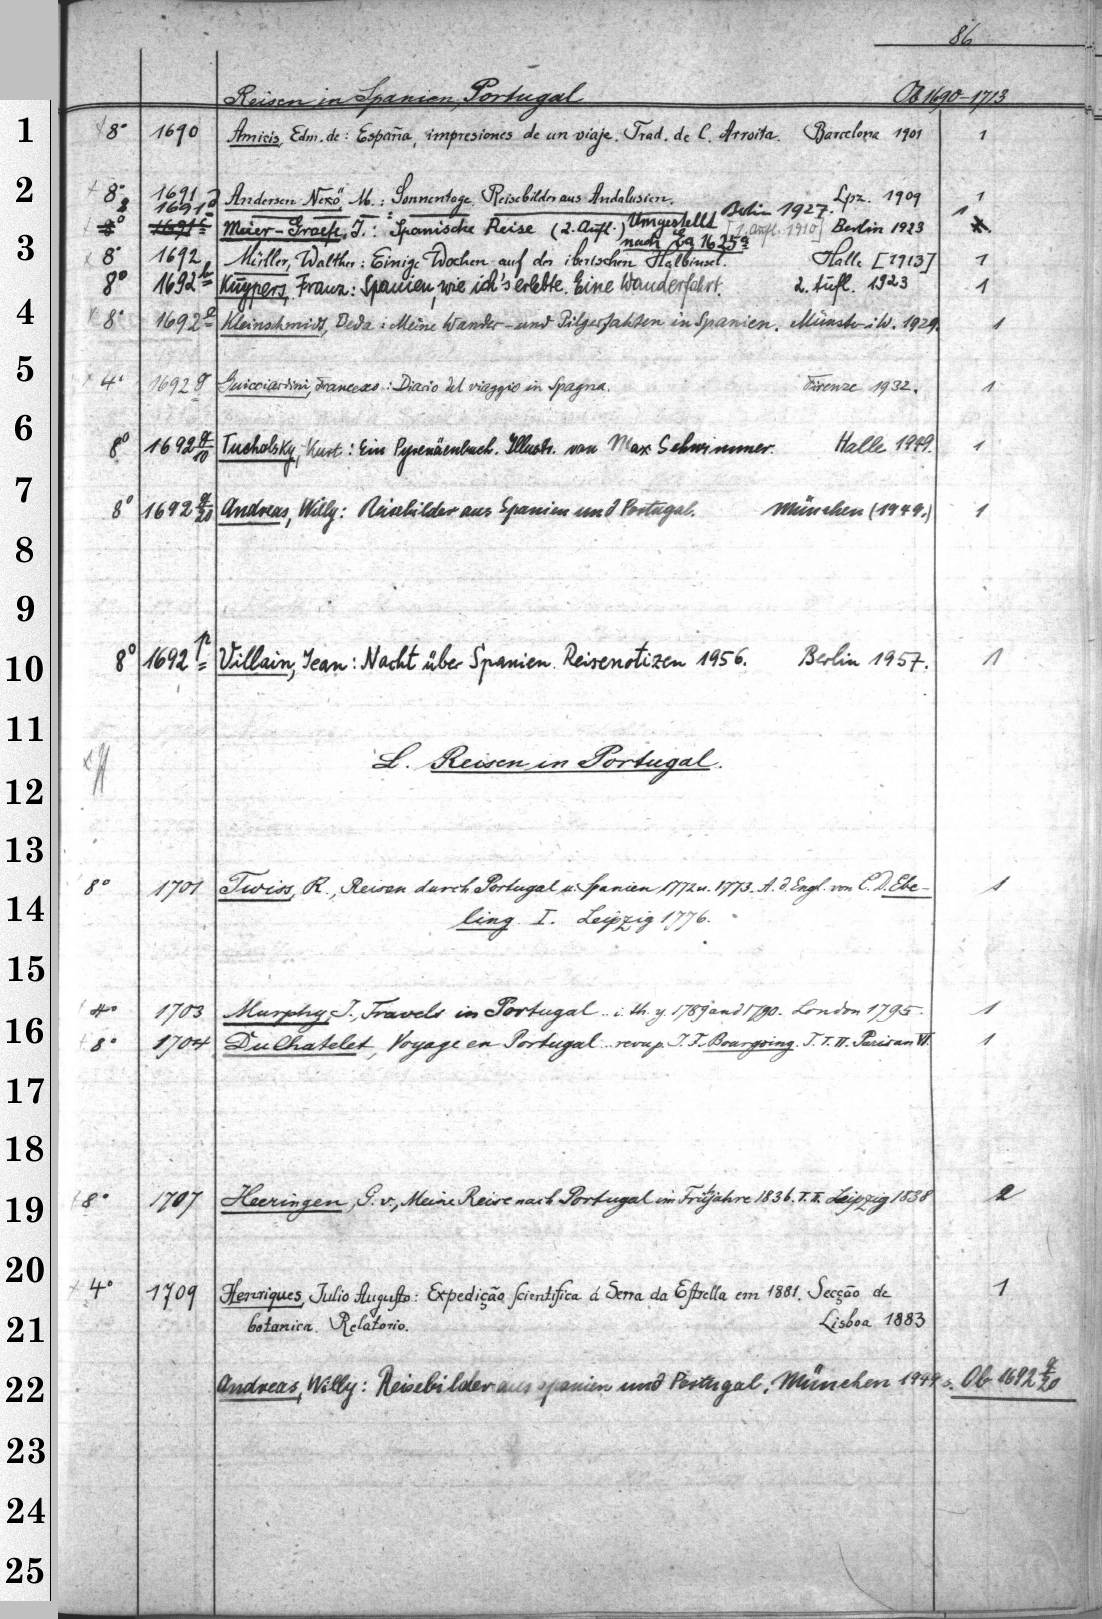 86
Reisen in Spanien, Portugal Ob 1690-1713
1 8° 1690 Amicis, Edm. de: España, impresiones de un viaje. Trad. de C. Arroita. Barcelona 1901 1
2 8° 1691 Andersen Nexö, M.: Sonnentage, Reisebilder aus Andalusien. Lpz. 1909 1
8 1691 a Berlin 1927. 1
8° 1691 Meier-Graefe, J.: Spanische Reise (2. Aufl.) Umgestellt [1. Aufl. 1910] Berlin 1923
nach Ea 1625
3 8° 1692 Müller, Walther: Einige Wochen auf der iberischen Halbinsel. Halle [1913] 1
8° 1692 b Kuypers, Franz: Spanien, wie ich's erlebte. Eine Wanderfahrt. 2. Aufl. 1923 1
4 8° 1692 e Kleinschmidt, Beda: Meine Wander- und Pilgerfahrten in Spanien. Münster i.W. 1929. 1
5 4° 1692 g Guicciardini, Francesco: Diario del viaggio in Spagna. Firenze 1932. 1
6 8° 1692 g/10 Tucholsky, Kurt: Ein Pyrenäenbuch. Illustr. von Max Schwimmer. Halle 1949. 1
7 8° 1692 g/20 Andreas, Willy: Reisebilder aus Spanien und Portugal. München (1949.) 1
8
9
10 8° 1692 p Villain, Jean: Nacht über Spanien. Reisenotizen 1956. Berlin 1957. 1
11
L. Reisen in Portugal.
12
13
14 8° 1701 Twiss, R., Reisen durch Portugal u. Spanien 1772 u. 1773. A. d. Engl. von C. D. Ebe- 1
ling. I. Leipzig 1776.
15
16 4° 1703 Murphy, J., Travels in Portugal .. i. th. y. 1789 and 1790. London 1795. 1
8° 1704 Du Chatelet, Voyage en Portugal .. revu p. J. F. Bourgoing. T. I. II. Paris an VI. 1
17
18
19 8° 1707 Heeringen, G. v., Meine Reise nach Portugal im Frühjahre 1836. T. II. Leipzig 1838 2
20 4° 1709 Henriques, Julio Augusto: Expedição scientifica á Serra da Estrella em 1881. Secção de 1
21 botanica. Relatorio. Lisboa 1883
22 Andreas, Willy: Reisebilder aus Spanien und Portugal. München 1949 s. Ob 1692 g/20
23
24
25